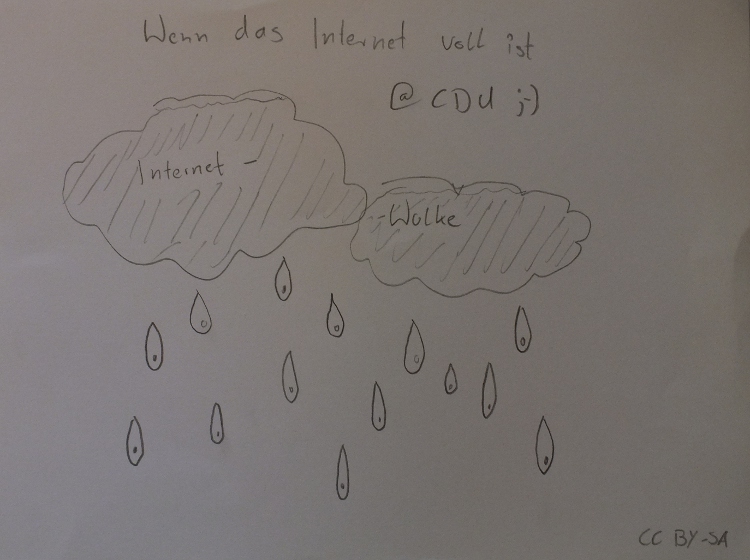 Wenn das Internet voll ist
@ CDU ;-)
Internet -
-Wolke
CC BY-SA